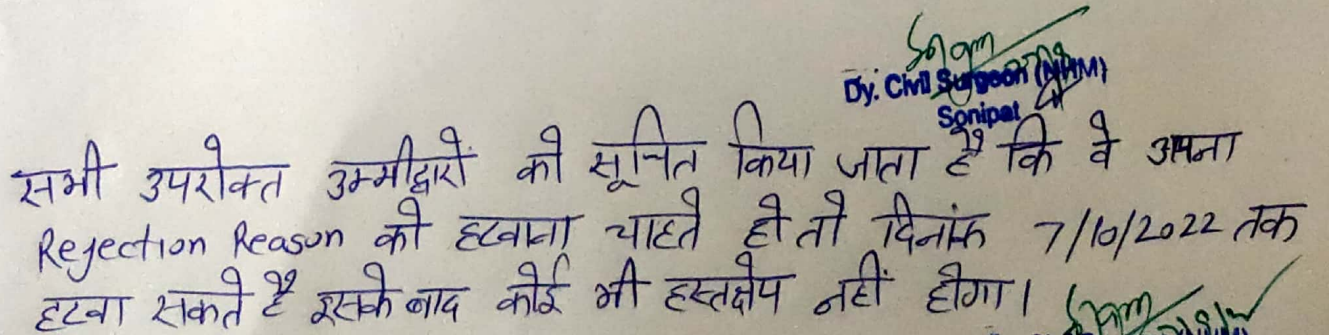 Dy. Civil Surgeon (NHM)
Sonipat
सभी उपरोक्त उम्मीद्वारों को सूचित किया जाता है कि वे अपना
Rejection Reason को हटवाना चाहते हो तो दिनांक 7/10/2022 तक
हटवा सकते है इसके बाद कोई भी हस्तक्षेप नहीं होगा।